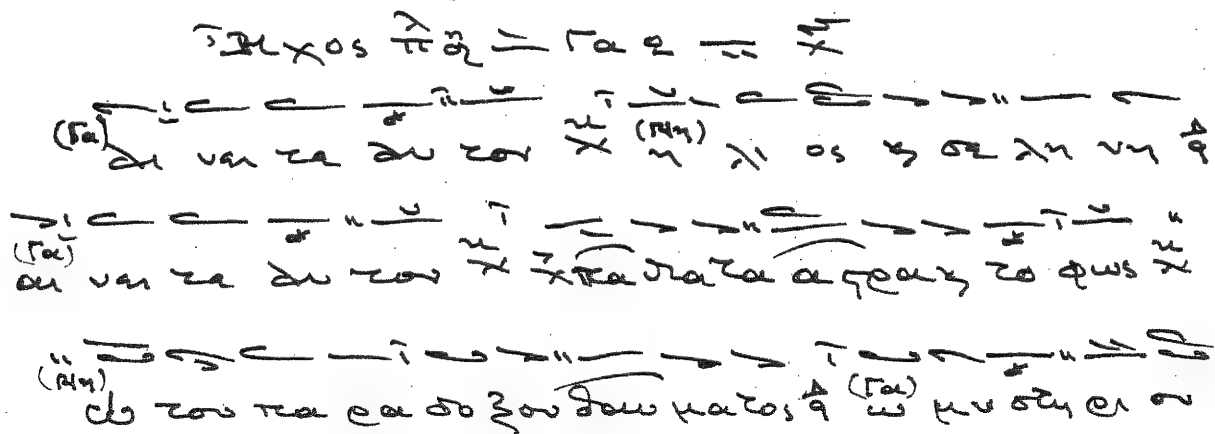 Ηχος πλ Γα
(Γα) αι νει τε αυ τον (Νη) η λι ος ϗ σε λη νη Δ
(Γα) αι νει τε αυ τον πα ντα τα α στρα ϗ το φως
(Νη) ω του πα ρα δο ξου θαυ μα τος Δ (Γα) ω μυ στη ρι ου